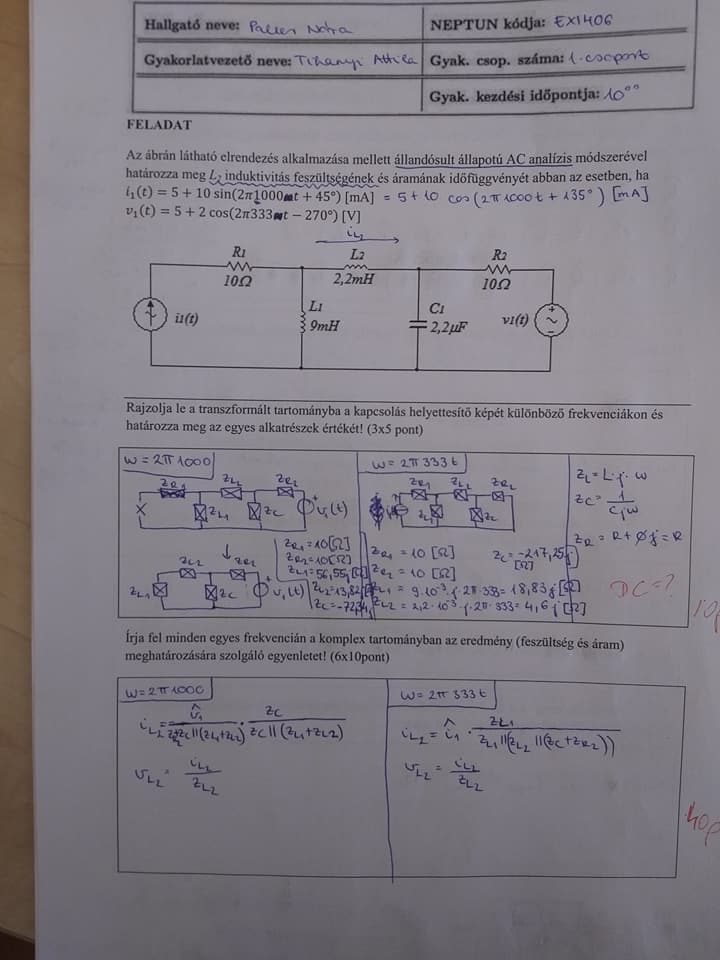 Hallgató neve: Paller Nóra
NEPTUN kódja: EX1406
Gyakorlatvezető neve: Tihanyi Attila
Gyak. csop. száma: 1. csoport
Gyak. kezdési időpontja: 10⁰⁰
FELADAT
Az ábrán látható elrendezés alkalmazása mellett állandósult állapotú AC analízis módszerével
határozza meg L₂ induktivitás feszültségének és áramának időfüggvényét abban az esetben, ha
i₁(t) = 5 + 10 sin(2π1000t + 45°) [mA] = 5 + 10 cos(2π1000t + 135°) [mA]
v₁(t) = 5 + 2 cos(2π333t − 270°) [V]
i_L2
R1
L2
R2
10Ω
2,2mH
10Ω
i1(t)
L1
9mH
C1
2,2µF
v1(t)
Rajzolja le a transzformált tartományba a kapcsolás helyettesítő képét különböző frekvenciákon és
határozza meg az egyes alkatrészek értékét! (3x5 pont)
ω = 2π1000
z_R1 z_L2 z_R2
z_L1 z_C v₁(t)
z_L2 z_R2
z_L1 z_C v₁(t)
z_R1 = 10[Ω]
z_R2 = 10[Ω]
z_L1 = 56,55j[Ω]
z_L2 = 13,82j
z_C = -72,34
ω = 2π333t
z_R1 z_L2 z_R2
z_L1 z_C
z_R1 = 10 [Ω]
z_R2 = 10 [Ω]
z_C = -217,25j [Ω]
z_L1 = 9·10⁻³·j·2π·333 = 18,83j[Ω]
z_L2 = 2,2·10⁻³·j·2π·333 = 4,6j[Ω]
z_L = L·j·ω
z_C = 1/(Cjω)
z_R = R + ∅j = R
DC = ?
10p
Írja fel minden egyes frekvencián a komplex tartományban az eredmény (feszültség és áram)
meghatározására szolgáló egyenletet! (6x10pont)
ω = 2π1000
i_L2 = v̂₁/(z_R2+z_C||(z_L1+z_L2)) · z_C/(z_C||(z_L1+z_L2))
v_L2 = i_L2/z_L2
ω = 2π333t
i_L2 = î₁ · z_L1/(z_L1||(z_L2||(z_C+z_R2)))
v_L2 = i_L2/z_L2
40p